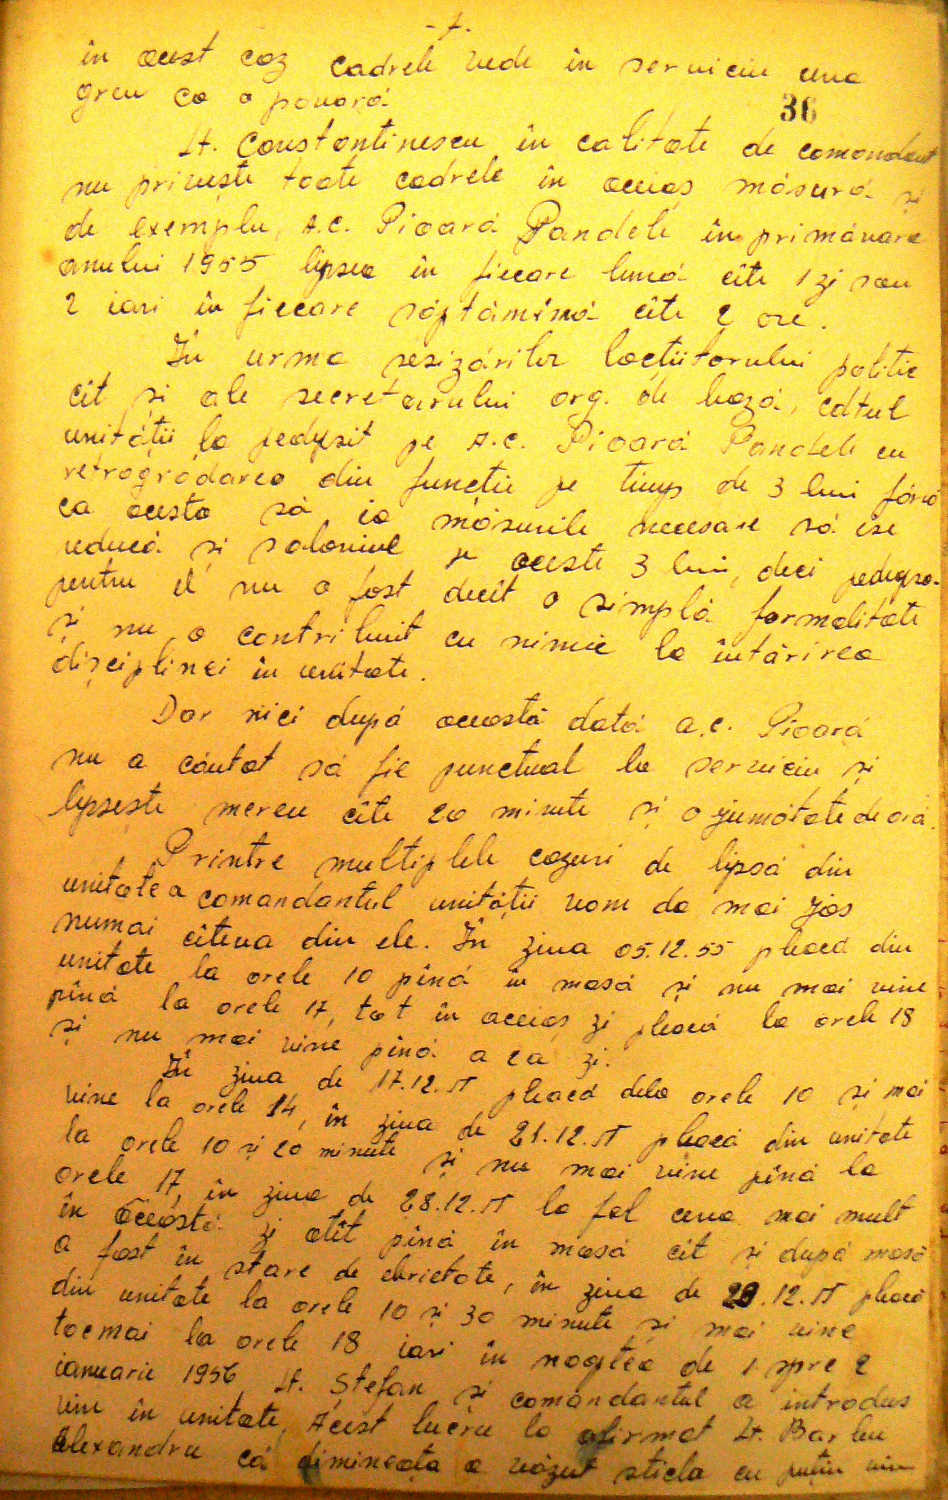 - 7.
în acest caz cadrele vede în serviciu una
grea ca o povară
36
Lt. Constantinescu în calitate de comandant
nu privește toate cadrele în aceiaș măsură și
de exemplu, A.C. Pioară Pandele în primăvara
anului 1955 lipsea în fiecare lună cîte 1 zi sau
2 iari în fiecare săptămînă cîte 2 ore.
În urma sesizărilor locțiitorului politic
cît și ale secretarului org. de bază, cdtul
unității la pedepsit pe A.C. Pioară Pandele cu
retrogradarea din funcție pe timp de 3 luni fără
ca acesta să ia măsurile necesare să ise
reducă și salariul pe aceste 3 luni, deci pedepsa
pentru el nu a fost decît o simplă formalitate
și nu a contribuit cu nimic la întărirea
disciplinei în unitate.
Dar nici după această dată a.c. Pioară
nu a căutat să fie punctual la serviciu și
lipsește mereu cîte 20 minute și o jumătate de oră.
Printre multiplele cazuri de lipsă din
unitate a comandantul unității vom da mai jos
numai cîteva din ele. În ziua 05.12.55 pleacă din
unitate la orele 10 pînă în masă și nu mai vine
pînă la orele 17, tot în aceiaș zi pleacă la orele 18
și nu mai vine pînă a 2a zi.
În ziua de 17.12.55 pleacă dela orele 10 și mai
vine la orele 14, în ziua de 21.12.55 pleacă din unitate
la orele 10 și 20 minute și nu mai vine pînă la
orele 17, în ziua de 28.12.55 la fel ceva mai mult
în această zi atît pînă în masă cît și după masă
a fost în stare de ebrietate, în ziua de 29.12.55 pleacă
din unitate la orele 10 și 30 minute și mai vine
tocmai la orele 18 iari în noaptea de 1 spre 2
ianuarie 1956 Lt. Ștefan și comandantul a introdus
vin în unitate. Acest lucru la afirmat Lt. Barbu
Alexandru că dimineața a văzut sticla cu puțin vin